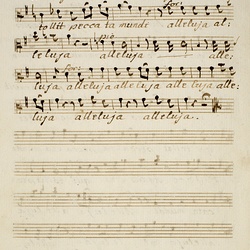 for:
tollit pecca ta mundi alleluja al:
pia
leluja alleluja alle:
for:
luja alleluja alleluja alleluja alle:
luja alleluja alleluja.